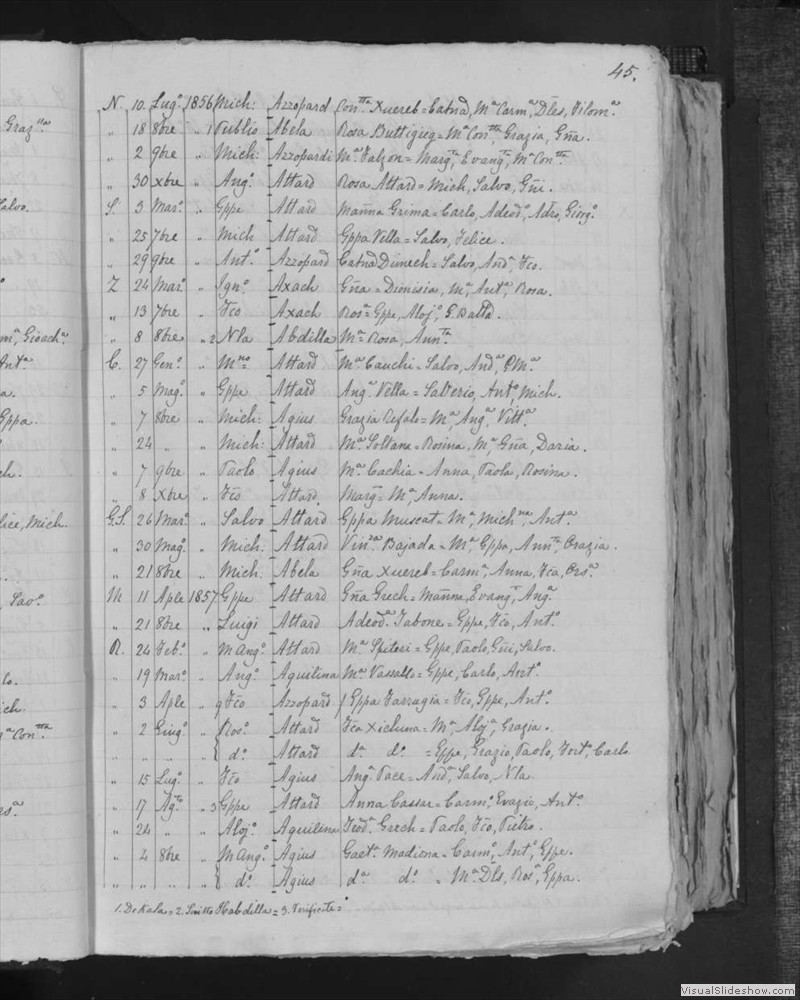 45.
N. 10. Lugº 1856 Mich: Azzopard Conᵗᵗᵃ Xuereb = Catnᵃ, Mᵃ Carmᵃ, Dles, Filomᵃ
„ 18 8bre „ 1 Publio Abela Rosa Buttigieg = Mᵃ Conᵗᵗᵃ, Grazia, Gña.
„ 2 9bre „ Mich: Azzopardi Mᵃ Falzon = Margᵗᵃ, Evangᵗᵃ, Mᵃ Conᵗᵗᵃ
„ 30 xbre „ Angº Attard Rosa Attard = Mich, Salvo, Gñi.
S. 3 Marº „ Gppe Attard Mañna Grima = Carlo, Adeodº, Giorgº.
„ 25 7bre „ Mich Attard Gppa Vella = Salvo, Felice.
„ 29 9bre „ Antº Azzopard Catna Dimech = Salvo, Andᵃ, Fco.
Z 24 Marº „ Ignº Axach Gña = Dionisia, Mᵃ, Antᵃ, Rosa.
„ 13 7bre „ Fco Axach Rosᵃ = Gppe, Alojº, G. Batta.
„ 8 8bre „ 2 Nla Abdilla Mᵃ = Rosa, Annᵗᵃ
C. 27 Genº „ Mⁿº Attard Mᵃ Cauchi = Salvo, Andᵃ, Mᵃ.
„ 5 Magº „ Gppe Attard Angᵃ Vella = Salverio, Antº, Mich.
„ 7 8bre „ Mich: Agius Grazia Refalo = Mᵃ, Angᵃ, Vittᵃ
„ 24 „ „ Mich: Attard Mᵃ Soltana = Rosina, Mᵃ, Gña, Daria.
„ 7 9bre „ Paolo Agius Mᵃ Cachia = Anna, Paola, Rosina.
„ 8 Xbre „ Fcõ Attard Margᵗᵃ = Mᵃ, Anna.
G.S. 26 Marº „ Salvo Attard Gppa Muscat = Mᵃ, Michⁿᵃ, Antᵃ
„ 30 Magº „ Mich: Attard Vinᶻᵃ Bajada = Mᵃ, Gppa, Annᵗᵃ, Grazia.
„ 21 8bre „ Mich: Abela Gña Xuereb = Carmᵃ, Anna, Fca, Orsᵃ
M 11 Aple 1857 Gppe Attard Gña Grech = Mañna, Evangᵗᵃ, Angᵃ
„ 21 8bre „ Luigi Attard Adeodᵃ Tabone = Gppe, Fcõ, Antº
R. 24 Febº „ M Angº Attard Mᵃ Spiteri = Gppe, Paolo, Gñi, Salvo.
„ 19 Marº „ Angº Aquilina Mᵃ Vassallo = Gppe, Carlo, Antº
„ 3 Aple „ Fco Azzopard Gppa Farrugia = Fcõ, Gppe, Antº
„ 2 Giugº „ Rosº Attard Fca Xicluna = Mᵃ, Alojᵃ, Grazia.
„ „ „ „ { dº Attard dᵃ dº = Gppe, Grazio, Paolo, Fortº, Carlo
„ 15 Lugº „ Fcõ Agius Angᵃ Pace = Andᵃ, Salvo, Nla
„ 17 Agᵗº „ 3 Gppe Attard Anna Cassar = Carmº, Evazio, Antº
„ 24 „ „ Alojº Aquilina Teodᵃ Grech = Paolo, Fcõ, Pietro.
„ 4 8bre „ M Angº Agius Gaetᵃ Madiona = Carmº, Antº, Gppe.
„ „ „ „ { dº Agius dᵃ dº = Mᵃ Dls, Rosᵃ, Gppa.
1. DeKala = 2. Scritto Habdilla = 3. Verificate =
Grazᵗᵗᵃ
Salvo.
Gioachᵃ
Antᵃ
Gppa.
lice, Mich.
Savº
Conᵗᵗᵃ
VisualSlideshow.com